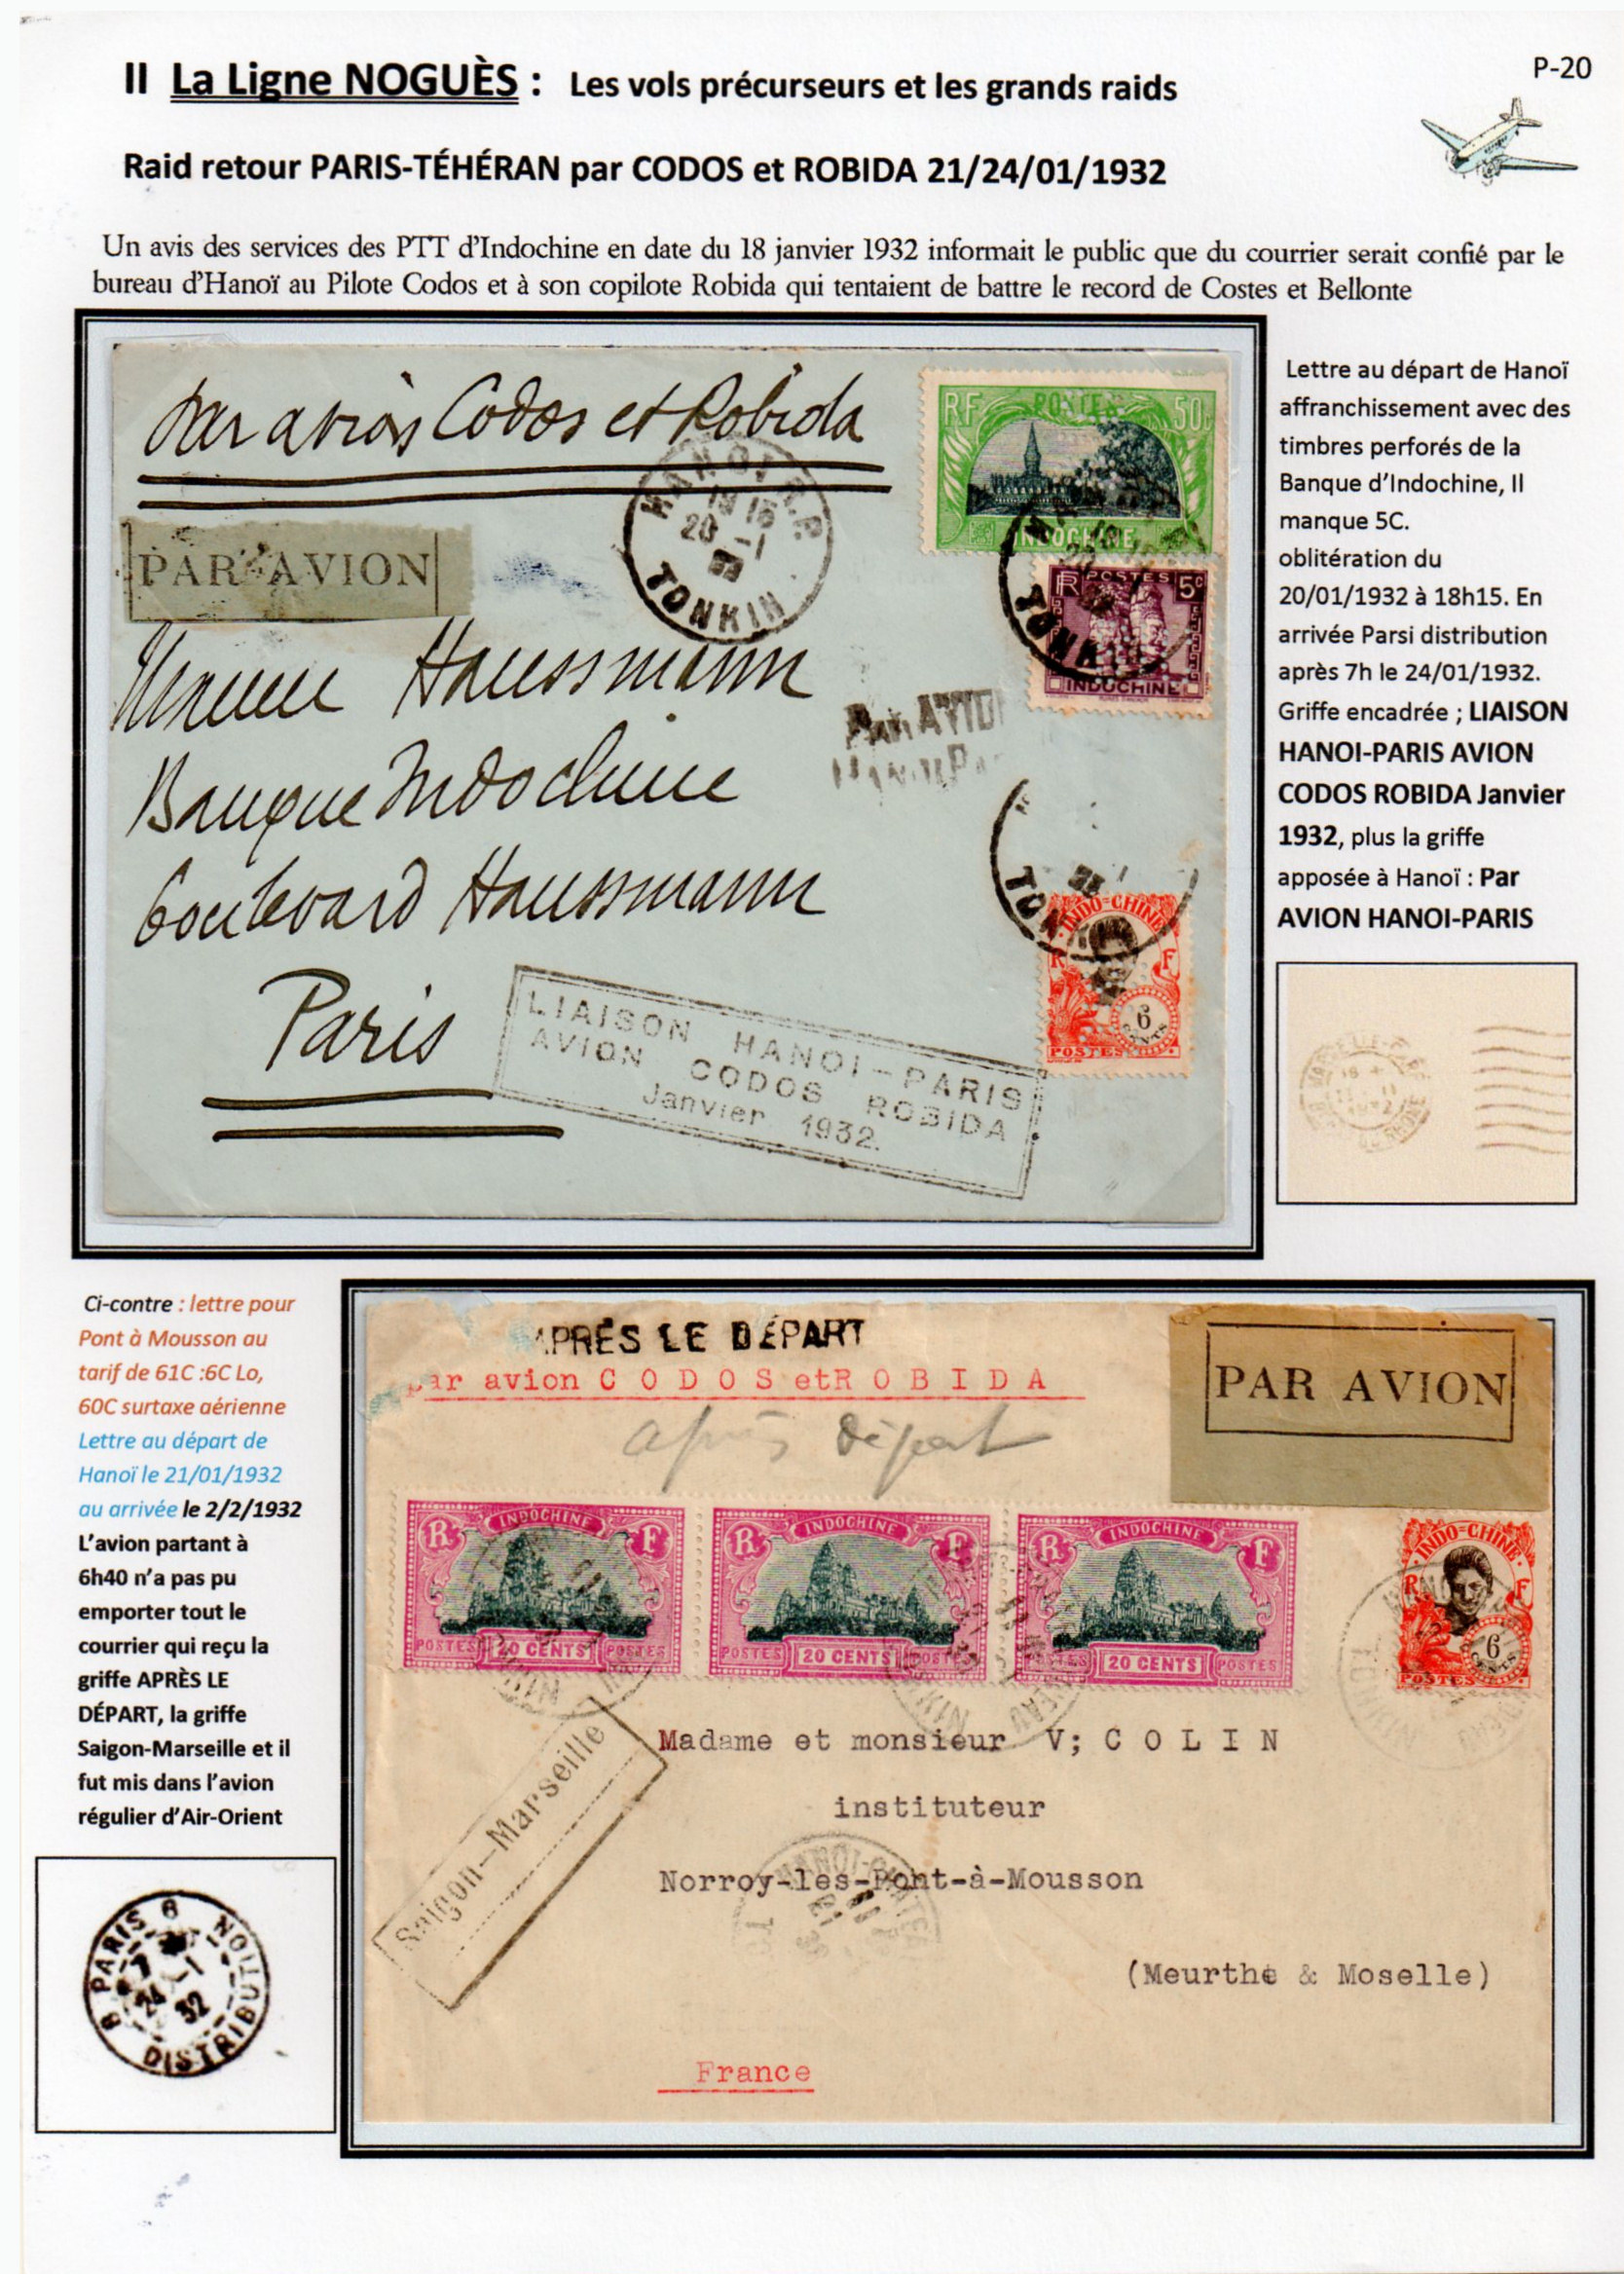 II La Ligne NOGUÈS : Les vols précurseurs et les grands raids
P-20
Raid retour PARIS-TÉHÉRAN par CODOS et ROBIDA 21/24/01/1932
Un avis des services des PTT d'Indochine en date du 18 janvier 1932 informait le public que du courrier serait confié par le
bureau d'Hanoï au Pilote Codos et à son copilote Robida qui tentaient de battre le record de Costes et Bellonte
Par avion Codos et Robida
RF POSTES 50c
INDOCHINE
HANOI R.P.
18 15
20 -1
TONKIN
PAR AVION
RF POSTES 5c
INDOCHINE
TONKIN
Haussmann
Par AVION
Banque Indochine
Boulevard Haussmann
TONKIN
INDO=CHINE
R F
6
CENTS
POSTES
Paris
LIAISON HANOI-PARIS
AVION CODOS ROBIDA
Janvier 1932.
Lettre au départ de Hanoï
affranchissement avec des
timbres perforés de la
Banque d'Indochine, Il
manque 5C.
oblitération du
20/01/1932 à 18h15. En
arrivée Parsi distribution
après 7h le 24/01/1932.
Griffe encadrée ; LIAISON
HANOI-PARIS AVION
CODOS ROBIDA Janvier
1932, plus la griffe
apposée à Hanoï : Par
AVION HANOI-PARIS
Ci-contre : lettre pour
Pont à Mousson au
tarif de 61C :6C Lo,
60C surtaxe aérienne
Lettre au départ de
Hanoï le 21/01/1932
au arrivée le 2/2/1932
L'avion partant à
6h40 n'a pas pu
emporter tout le
courrier qui reçu la
griffe APRÈS LE
DÉPART, la griffe
Saigon-Marseille et il
fut mis dans l'avion
régulier d'Air-Orient
8 PARIS 8
7
24 -1
32
DISTRIBUTION
APRÈS LE DÉPART
par avion C O D O S et R O B I D A
après départ
PAR AVION
R INDOCHINE F
POSTES 20 CENTS POSTES
R INDOCHINE F
POSTES 20 CENTS POSTES
R INDOCHINE F
POSTES 20 CENTS POSTES
INDO=CHINE
R F
6
CENTS
POSTES
Saigon-Marseille
Madame et monsieur V; C O L I N
instituteur
Norroy-les-Pont-à-Mousson
(Meurthe & Moselle)
France